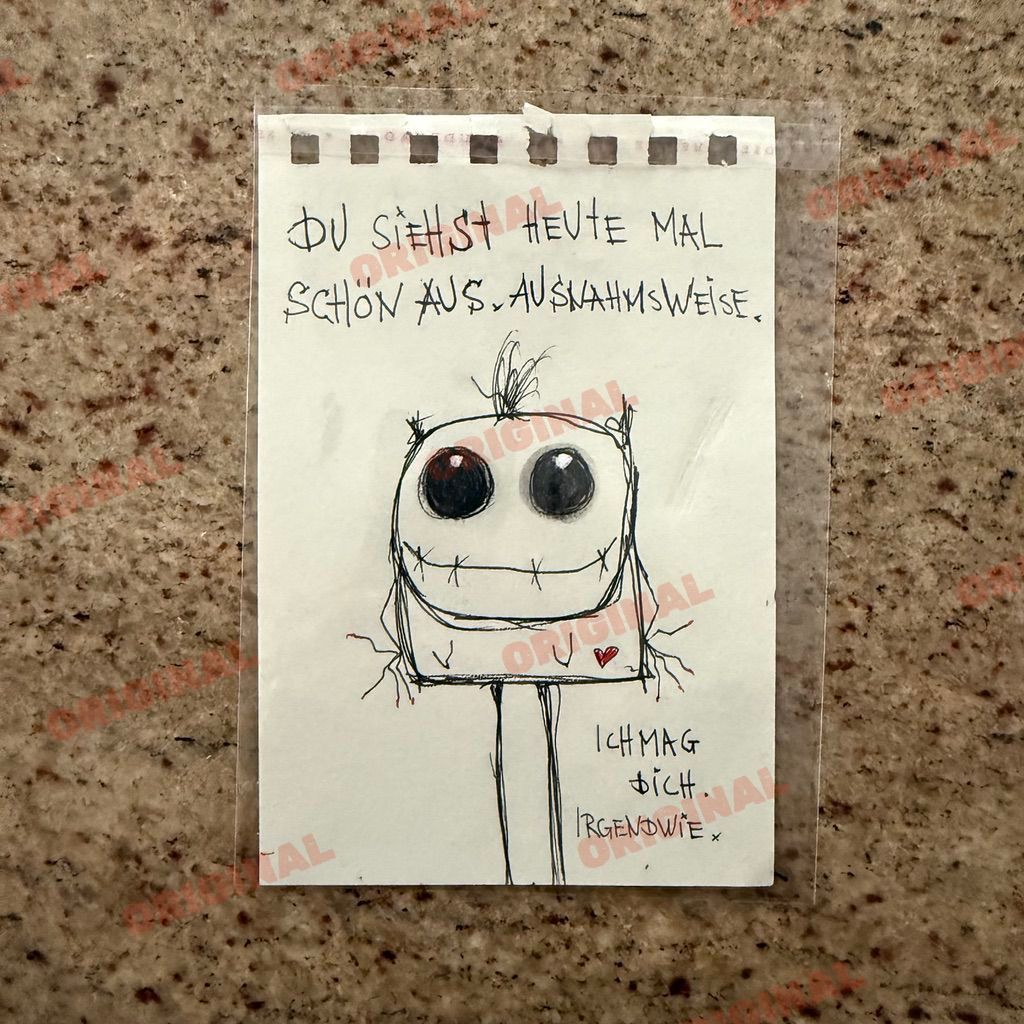 DU SIEHST HEUTE MAL
SCHÖN AUS. AUSNAHMSWEISE.
ICH MAG
DICH.
IRGENDWIE.
ORIGINAL
ORIGINAL
ORIGINAL
ORIGINAL
ORIGINAL
ORIGINAL
ORIGINAL
ORIGINAL
ORIGINAL
ORIGINAL
ORIGINAL
ORIGINAL
ORIGINAL
ORIGINAL